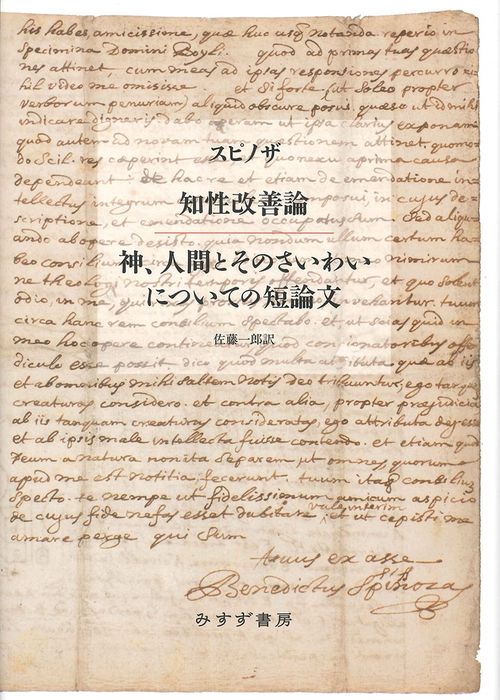 his habes, amicissime, quæ huc usq notanda reperio in
Specimina Domini Boyli. quod ad primas tuas quæstio
nes attinet, cum meas ad ipsas responsiones percurro ni
hil video me omisisse. et si forte, ut soleo propter
verborum penuriam aliquid obscure posui, quæso ut id mihi
indicare digneris. dabo operam ut ipsa clarius exponam
quod autem ad novam tuam quæstionem attinet, quomo
do scil. res coeperint esse prima causa
dependeant: de hac re et etiam de emendatione in
tellectus integrum
スピノザ
知性改善論
神、人間とそのさいわい
についての短論文
佐藤一郎訳
scriptione, et emendatione occupatus sum. Sed aliqu
ando ab opere desisto. quia nondum ullum certum ha
circa hanc rem consilium Spectabo. et ut scias quid in
meo hoc opere contineatur quod concionatoribus offen
diculo esse possit. dico quod multa attributa, quæ ab iis
et ab omnibus mihi saltem notis deo tribuuntur, ego tanquam
creaturas considero. et contra alia, propter præjudicia
ab iis tanquam creaturas considerata, ego attributa dei esse
et ab ipsis male intellecta fuisse contendo. et etiam quod
Deum a natura non ita separem ut omnes, quorum
apud me est notitia, fecerunt. tuum itaq consilium
Specto. te nempe ut fidelissimum amicum aspicio
de cujus fide nefas esset dubitare. vale interim et ut cepisti me
amare perge qui Sum
tuus ex asse
Benedictus Spinoza
みすず書房